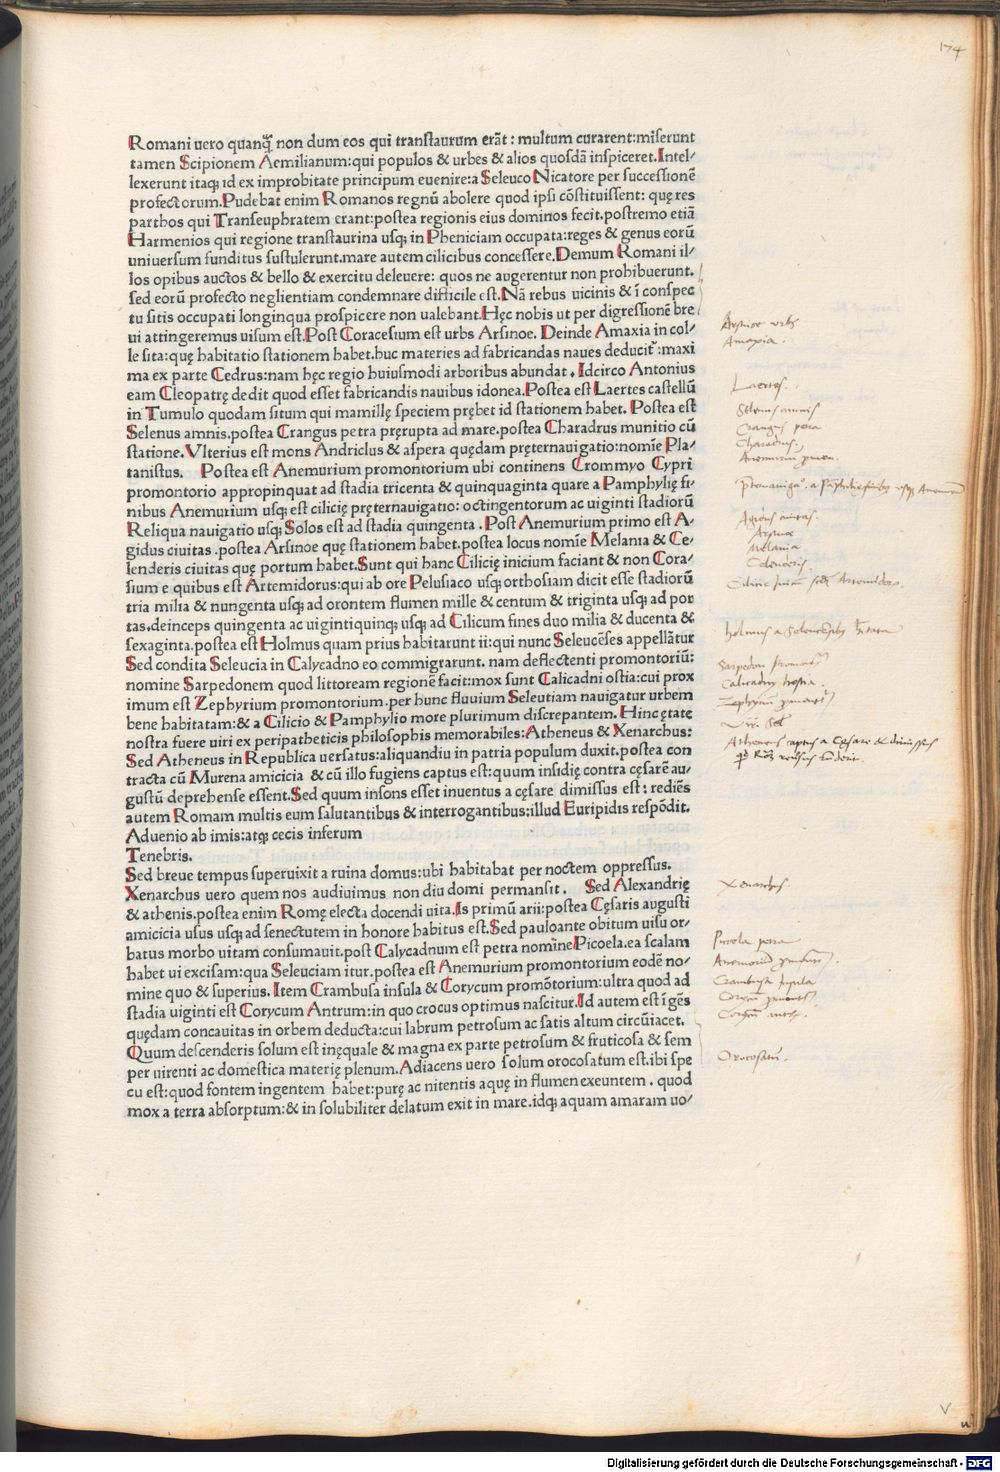 174
Romani uero quanq̃ non dum eos qui transtaurum erãt : multum curarent:miserunt
tamen Scipionem Aemilianum:qui populos & urbes & alios quosdã inspiceret.Intel⸗
lexerunt itaq; id ex improbitate principum euenire:a Seleuco Nicatore per successionẽ
profectorum.Pudebat enim Romanos regnũ abolere quod ipsi cõstituissent: quę res
parthos qui Transeuphratem erant:postea regionis eius dominos fecit.postremo etiã
Harmenios qui regione transtaurina usq; in Pheniciam occupata:reges & genus eorũ
uniuersum funditus sustulerunt.mare autem cilicibus concessere.Demum Romani il⸗
los opibus auctos & bello & exercitu deleuere: quos ne augerentur non prohibuerunt.
sed eorũ profecto neglientiam condemnare difficile est.Nã rebus uicinis & ĩ conspec
tu sitis occupati longinqua prospicere non ualebant.Hęc nobis ut per digressionẽ bre
ui attingeremus uisum est.Post Coracesium est urbs Arsinoe. Deinde Amaxia in col⸗
le sita:quę habitatio stationem habet.huc materies ad fabricandas naues deducit᷑:maxi
ma ex parte Cedrus:nam hęc regio huiusmodi arboribus abundat . Idcirco Antonius
eam Cleopatrę dedit quod esset fabricandis nauibus idonea.Postea est Laertes castellũ
in Tumulo quodam situm qui mamillę speciem prębet id stationem habet. Postea est
Selenus amnis.postea Crangus petra prerupta ad mare.postea Charadrus munitio cũ
statione. Vlterius est mons Andriclus & aspera quędam pręternauigatio:nomĩe Pla⸗
tanistus. Postea est Anemurium promontorium ubi continens Crommyo Cypri
promontorio appropinquat ad stadia tricenta & quinquaginta quare a Pamphylię fi⸗
nibus Anemurium usq; est cilicię pręternauigatio: octingentorum ac uiginti stadiorũ
Reliqua nauigatio usq; Solos est ad stadia quingenta . Post Anemurium primo est A⸗
gidus ciuitas .postea Arsinoe quę stationem habet.postea locus nomĩe Melania & Ce⸗
lenderis ciuitas quę portum habet.Sunt qui hanc Cilicię inicium faciant & non Cora⸗
sium e quibus est Artemidorus:qui ab ore Pelusiaco usq; orthosiam dicit esse stadiorũ
tria milia & nungenta usq; ad orontem flumen mille & centum & triginta usq; ad por
tas.deinceps quingenta ac uigintiquinq; usq; ad Cilicum fines duo milia & ducenta &
sexaginta.postea est Holmus quam prius habitarunt ii:qui nunc Seleucẽses appellãtur
Sed condita Seleucia in Calycadno eo commigrarunt. nam deflectenti promontoriũ:
nomine Sarpedonem quod littoream regionẽ facit:mox sunt Calicadni ostia:cui prox
imum est Zephyrium promontorium.per hunc fluuium Seleutiam nauigatur urbem
bene habitatam:& a Cilicio & Pamphylio more plurimum discrepantem. Hinc ętate
nostra fuere uiri ex peripatheticis philosophis memorabiles:Atheneus & Xenarchus:
Sed Atheneus in Republica uersatus:aliquandiu in patria populum duxit.postea con
tracta cũ Murena amicicia & cũ illo fugiens captus est:quum insidię contra cęsarẽ au⸗
gustũ deprehense essent.Sed quum insons esset inuentus a cęsare dimissus est : rediẽs
autem Romam multis eum salutantibus & interrogantibus:illud Euripidis respõdit.
Aduenio ab imis:atq; cecis inferum
Tenebris.
Sed breue tempus superuixit a ruina domus:ubi habitabat per noctem oppressus.
Xenarchus uero quem nos audiuimus non diu domi permansit. Sed Alexandrię
& athenis.postea enim Romę electa docendi uita.Is primũ arii:postea Cęsaris augusti
amicicia usus usq; ad senectutem in honore habitus est.Sed pauloante obitum uisu or⸗
batus morbo uitam consumauit.post Calycadnum est petra nomĩne Picoela.ea scalam
habet ui excisam:qua Seleuciam itur.postea est Anemurium promontorium eodẽ no⸗
mine quo & superius. Item Crambusa insula & Corycum promõtorium:ultra quod ad
stadia uiginti est Corycum Antrum:in quo crocus optimus nascitur.Id autem est ĩgẽs
quędam concauitas in orbem deducta:cui labrum petrosum ac satis altum circũiacet.
Quum descenderis solum est inęquale & magna ex parte petrosum & fruticosa & sem
per uirenti ac domestica materię plenum.Adiacens uero solum orocosatum est.ibi spe
cu est:quod fontem ingentem habet:purę ac nitentis aquę in flumen exeuntem . quod
mox a terra absorptum:& in solubiliter delatum exit in mare.idq; aquam amaram uo⸗
Arsinoe urbs
Amaxia.
Laertes.
Selenus amnis
Crangus petra
Charadrus.
Arsinoe
Melania
Celenderis.
Xenarchus.
Picoela petra
Crambusa insula
Orocosatũ.
V
Digitalisierung gefördert durch die Deutsche Forschungsgemeinschaft - DFG